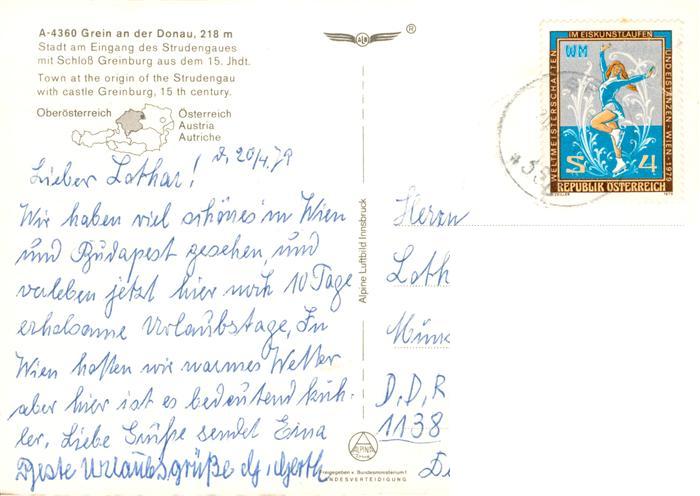 A-4360 Grein an der Donau, 218 m
Stadt am Eingang des Strudengaues
mit Schloß Greinburg aus dem 15. Jhdt.
Town at the origin of the Strudengau
with castle Greinburg, 15 th century.
Oberösterreich
Österreich
Austria
Autriche
®
WELTMEISTERSCHAFTEN
IM EISKUNSTLAUFEN
UND EISTANZEN - WIEN - 1979
WM
S 4
REPUBLIK ÖSTERREICH
d. 20/4.79
Lieber Lothar!
Wir haben viel schönes in Wien
und Budapest gesehen, und
verleben jetzt hier noch 10 Tage
erholsame Urlaubstage, In
Wien hatten wir warmes Wetter
aber hier ist es bedeutend küh-
ler, Liebe Grüße sendet Erna
Beste Urlaubsgrüße
Alpine Luftbild Innsbruck
Herrn
Loth
D.D.R
1138
ALPINE
Freigegeben v. Bundesministerium f.
LANDESVERTEIDIGUNG